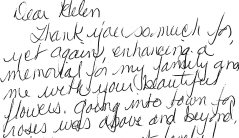 Dear Helen
Thank you so much for,
yet again, enhancing a
memorial for my family and
me with your beautiful
flowers. Going into town for
roses was above and beyond.